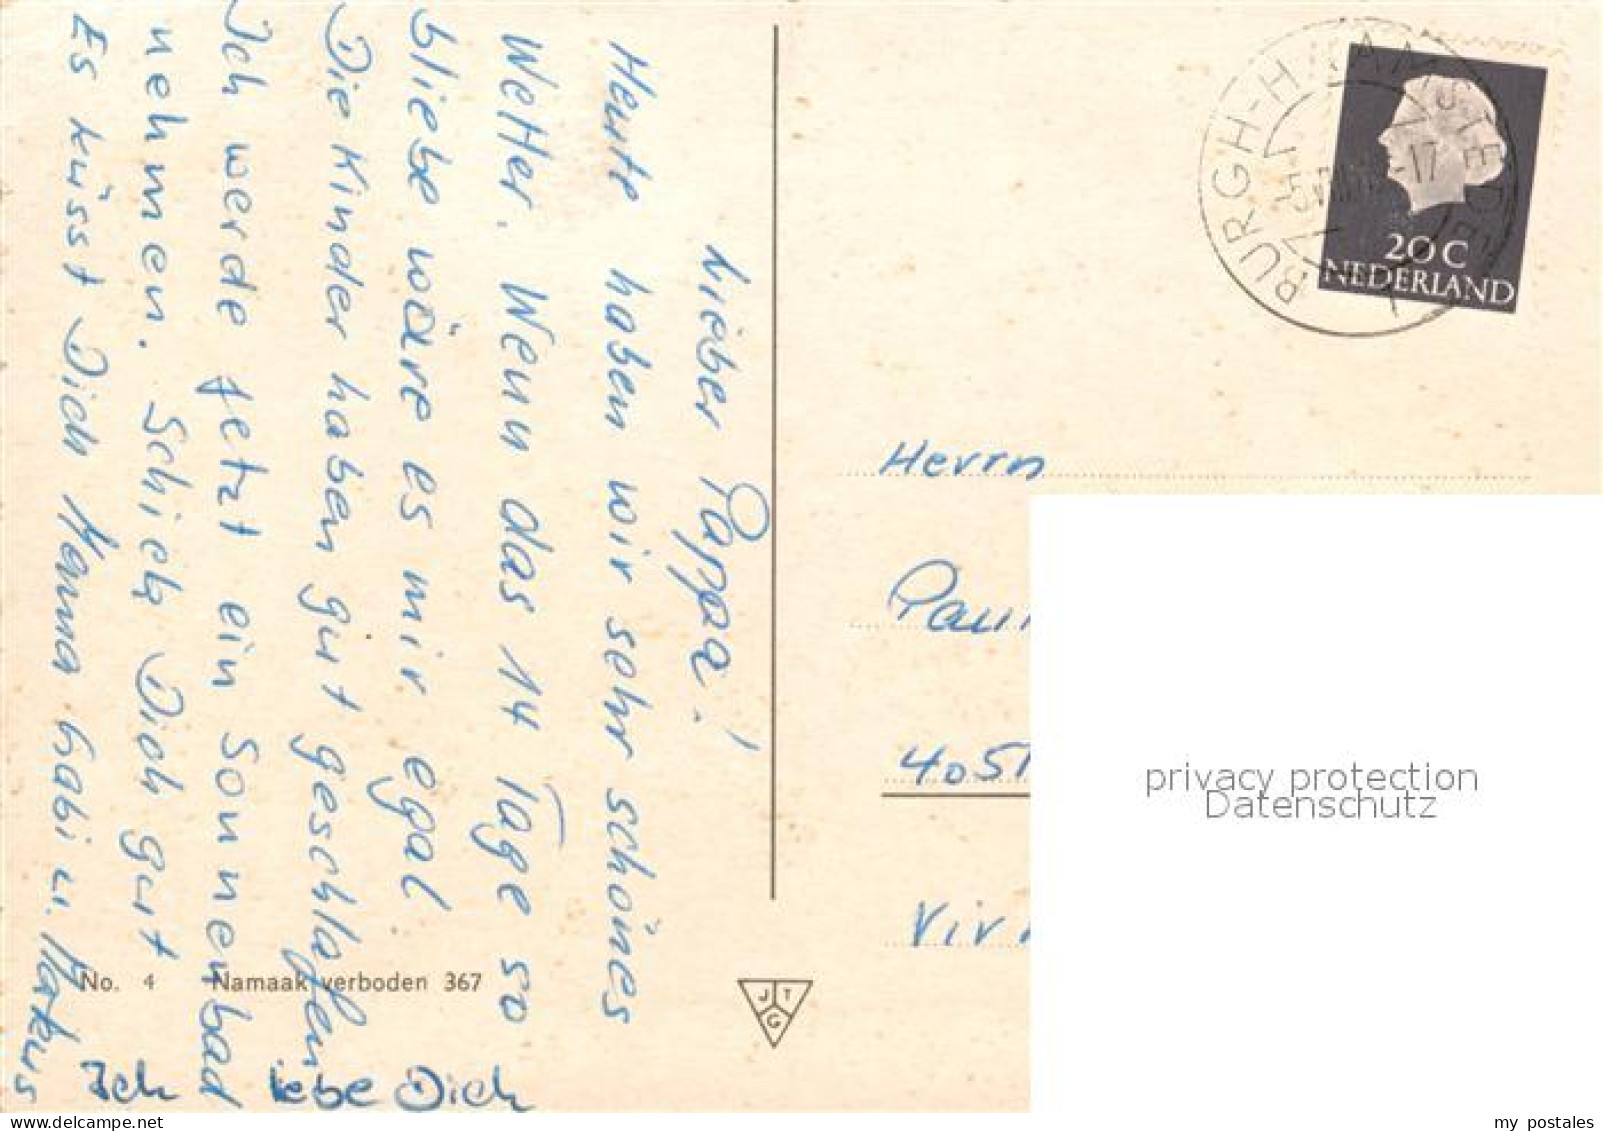 Lieber Pappa!
Heute haben wir sehr schönes
Wetter. Wenn das 14 Tage so
bliebe wäre es mir egal.
Die Kinder haben gut geschlafen
Ich werde jetzt ein Sonnenbad
nehmen. Schlich Dich gut
Es küsst Dich Mamma Gabi u. Markus
Ich liebe Dich
No. 4 Namaak verboden 367
JTG
BURGH-HAAMSTEDE
-17
20C
NEDERLAND
Herrn
Paul
4051
privacy protection
Datenschutz
my postales